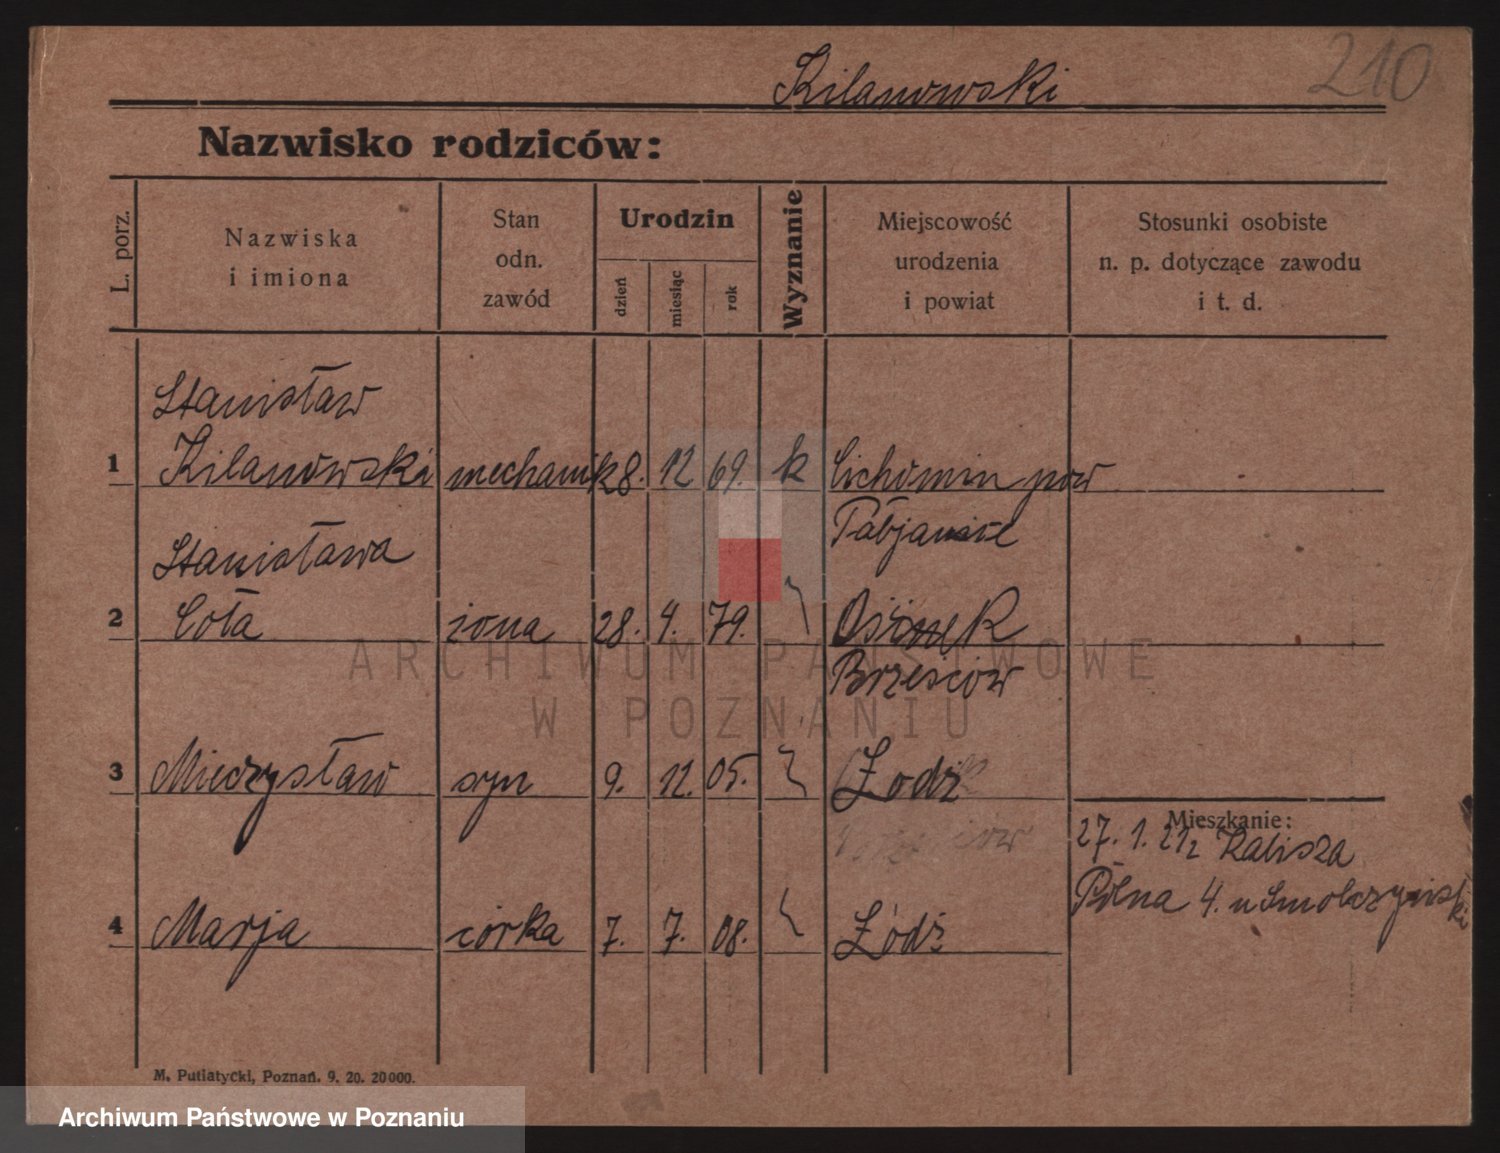 210
Kilanowski
Nazwisko rodziców:
L. porz.
Nazwiska
i imiona
Stan
odn.
zawód
Urodzin
dzień
miesiąc
rok
Wyznanie
Miejscowość
urodzenia
i powiat
Stosunki osobiste
n. p. dotyczące zawodu
i t. d.
Stanisław
1 Kilanowski mechanik 8. 12 69. k Cichomin pow
Pabjanice
Stanisława
2 Cota żona 28. 4. 79.
Brześców
3 Mieczysław syn 9. 12. 05. Łodź
Mieszkanie:
27. 1. 21 z Kalisza
Polna 4. u Smolczyński
4 Marja córka 7. 7. 08. Łódź
M. Putiatycki, Poznań. 9. 20. 20000.
ARCHIWUM PAŃSTWOWE
W POZNANIU
Archiwum Państwowe w Poznaniu